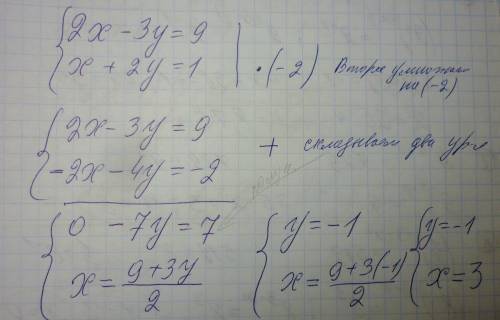 2x - 3y = 9
x + 2y = 1 | · (-2) Второе умножаем на (-2)
2x - 3y = 9
-2x - 4y = -2 + складываем два ур-я
0 - 7y = 7
x = (9+3y)/2
y = -1
x = (9+3(-1))/2
y = -1
x = 3